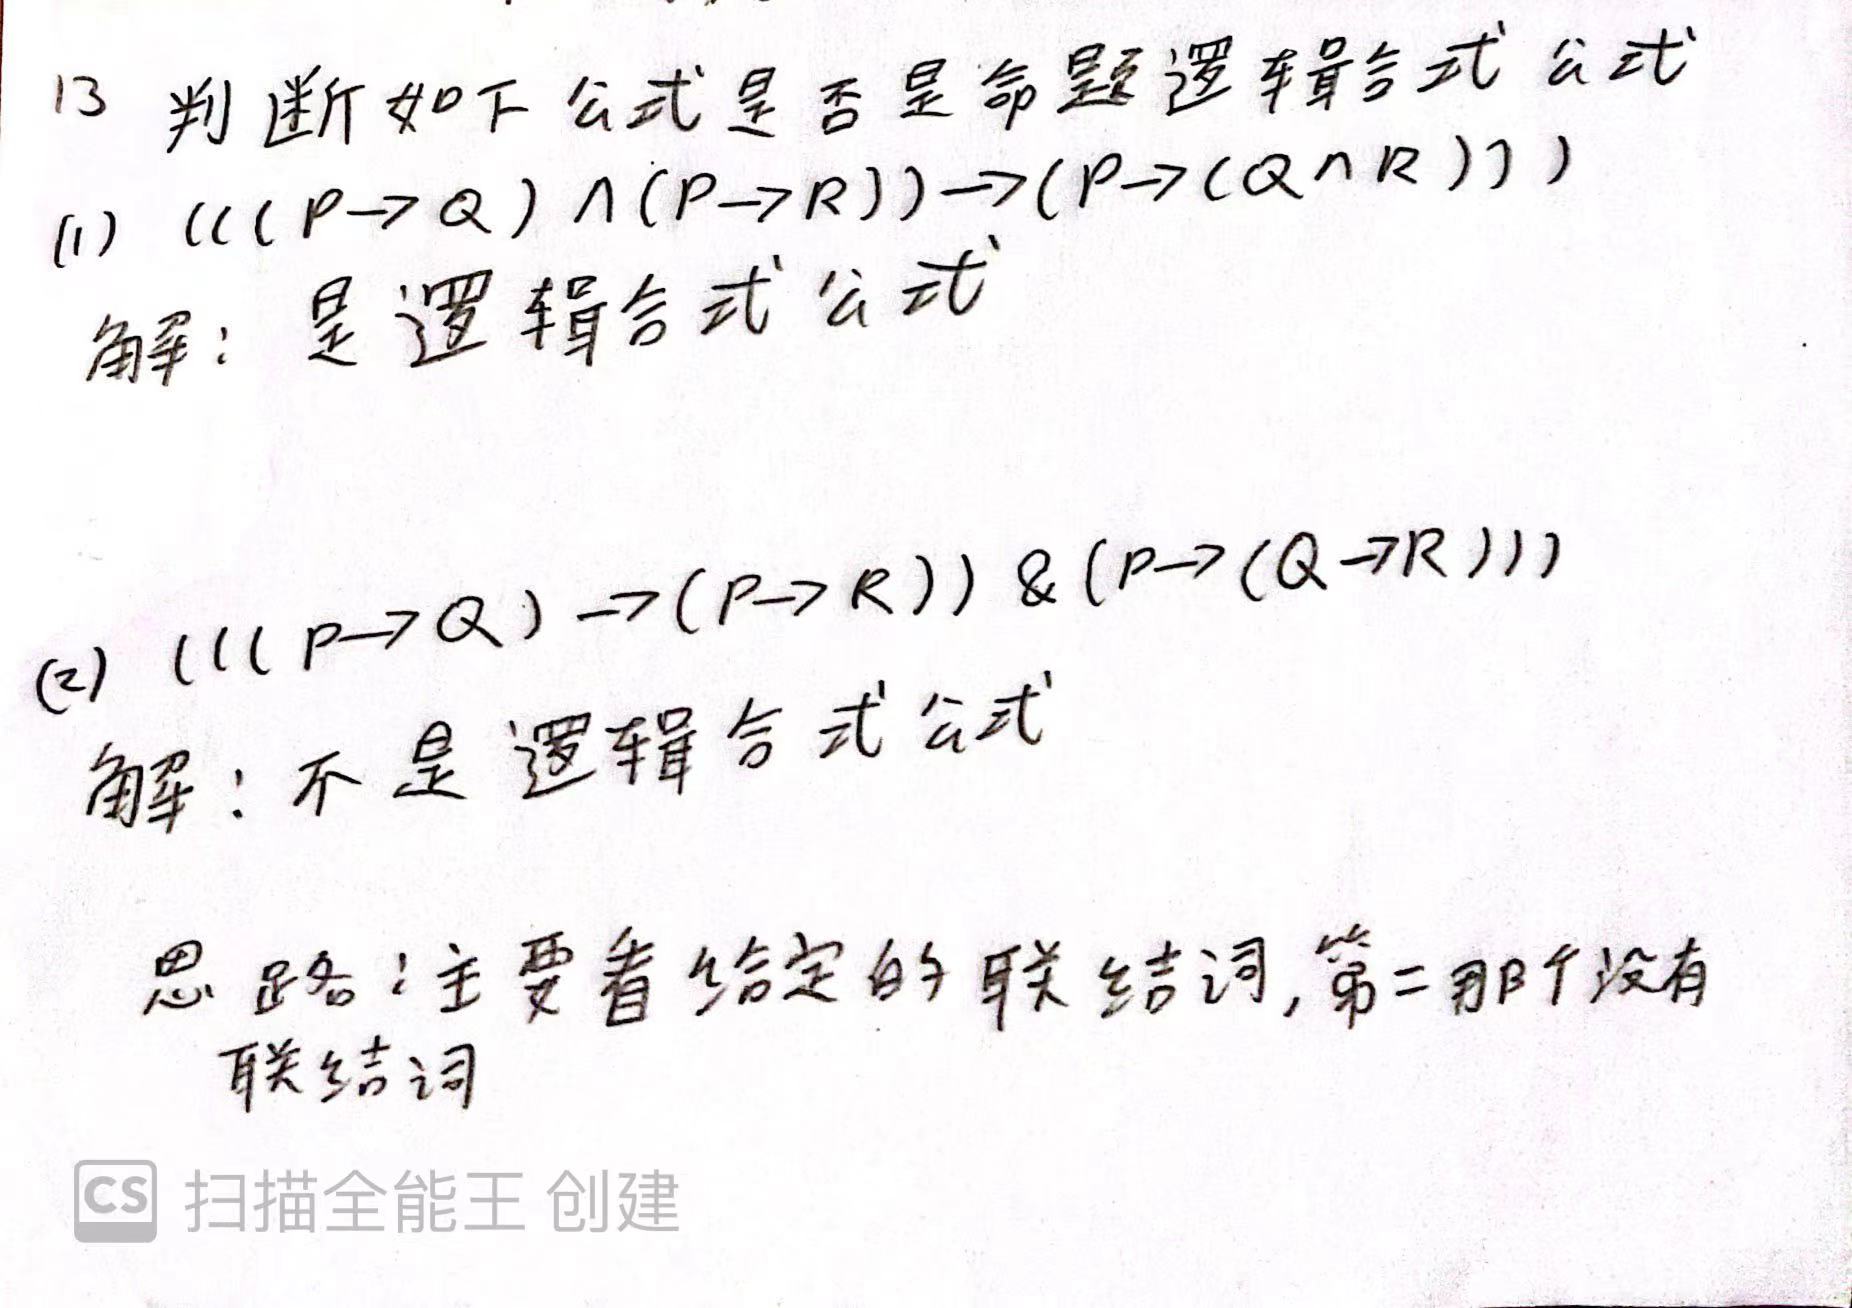 13 判断如下公式是否是命题逻辑合式公式
(1) (((P→Q)∧(P→R))→(P→(Q∧R)))
解：是逻辑合式公式
(2) (((P→Q)→(P→R))&(P→(Q→R)))
解：不是逻辑合式公式
思路：主要看给定的联结词,第二那个没有
联结词
CS 扫描全能王 创建